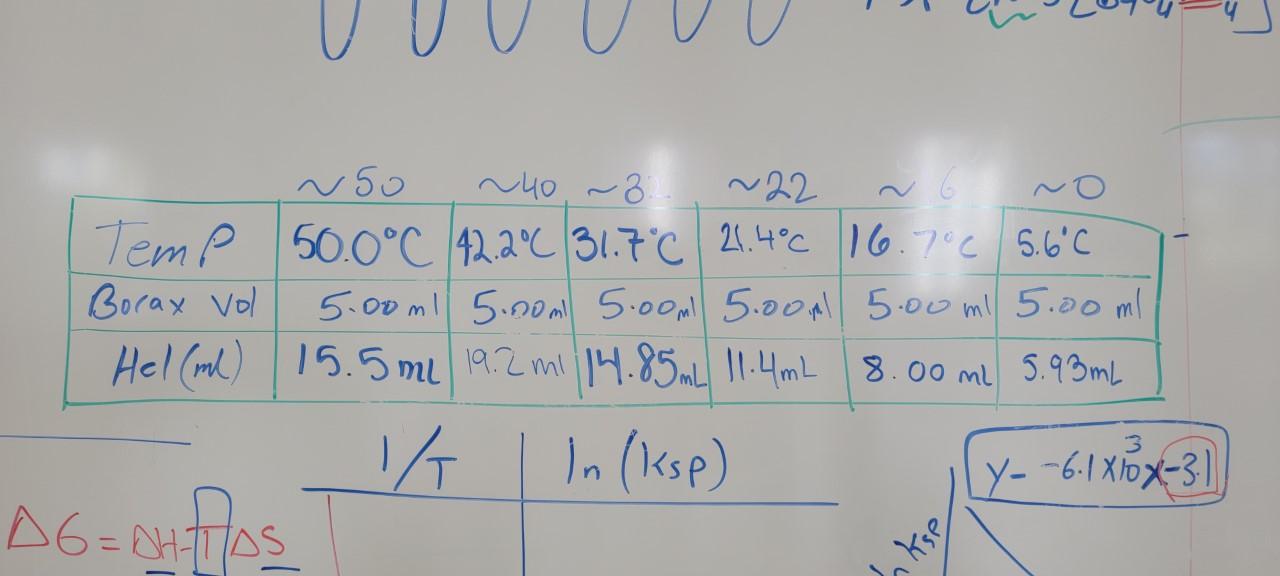 ~50 ~40 ~32 ~22 ~16 ~0
Temp 50.0°C 42.2°C 31.7°C 21.4°C 16.7°C 5.6°C
Borax Vol 5.00 ml 5.00 ml 5.00 ml 5.00 ml 5.00 ml 5.00 ml
Hcl (ml) 15.5 mL 19.2 ml 14.85 mL 11.4 mL 8.00 ml 5.93 mL
1/T ln (Ksp)
y- -6.1 x 10³x -3.1
ΔG = ΔH-TΔS
ln Ksp